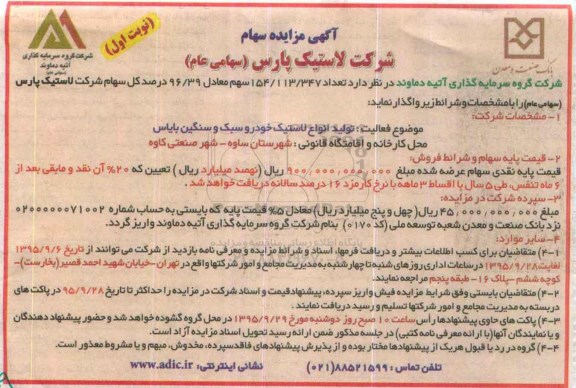 آگهی مزایده سهام
(نوبت اول)
شرکت لاستیک پارس (سهامی عام)
بانک صنعت و معدن
شرکت گروه سرمایه گذاری
آتیه دماوند
(سهامی عام)
شرکت گروه سرمایه گذاری آتیه دماوند در نظر دارد تعداد ۱۵۴/۱۱۳/۳۴۷ سهم معادل ۹۶/۳۹ درصد کل سهام شرکت لاستیک پارس
(سهامی عام) را با مشخصات و شرائط زیر واگذار نماید:
۱- مشخصات شرکت:
موضوع فعالیت: تولید انواع لاستیک خودرو سبک و سنگین بایاس
محل کارخانه و اقامتگاه قانونی: شهرستان ساوه - شهر صنعتی کاوه
۲- قیمت پایه سهام و شرائط فروش:
قیمت پایه نقدی سهام عرضه شده مبلغ ۹۰۰,۰۰۰,۰۰۰,۰۰۰ ریال (نهصد میلیارد ریال) تعیین که ۲۰% آن نقد و مابقی بعد از
۶ ماه تنفس، طی ۵ سال با اقساط ۳ ماهه با نرخ کارمزد ۱۶ درصد سالانه دریافت خواهد شد.
۳- سپرده شرکت در مزایده:
مبلغ ۴۵,۰۰۰,۰۰۰,۰۰۰ ریال (چهل و پنج میلیارد ریال) معادل ۵% قیمت پایه که بایستی به حساب شماره ۰۲۰۰۰۰۰۰۷۱۰۰۲
نزد بانک صنعت و معدن شعبه توسعه ملی (کد ۰۱۷۰) بنام شرکت گروه سرمایه گذاری آتیه دماوند واریز گردد.
۴- سایر موارد:
۴-۱) متقاضیان برای کسب اطلاعات بیشتر و دریافت فرمها، اسناد و شرائط مزایده و معرفی نامه بازدید از شرکت می توانند از تاریخ ۱۳۹۵/۹/۶
لغایت ۱۳۹۵/۹/۲۸ در ساعات اداری روزهای شنبه تا چهارشنبه به مدیریت مجامع و امور شرکتها واقع در تهران- خیابان شهید احمد قصیر (بخارست)-
کوچه ششم - پلاک ۱۶ - طبقه پنجم مراجعه نمایند.
۴-۲) متقاضیان بایستی وفق شرایط مزایده فیش واریز سپرده، پیشنهاد قیمت و اسناد شرکت در مزایده را حداکثر تا تاریخ ۹۵/۹/۲۸ در پاکت های
دربسته به مدیریت مجامع و امور شرکتها تسلیم و رسید دریافت نمایند.
۴-۳) پاکت های حاوی پیشنهادها رأس ساعت ۱۰ صبح روز دوشنبه مورخ ۱۳۹۵/۹/۲۹ در محل گروه گشوده خواهد شد و حضور پیشنهاد دهندگان
و یا نمایندگان آنها (با ارائه معرفی نامه کتبی) در جلسه مذکور ضمن ارائه رسید تحویل اسناد مزایده آزاد است.
۴-۴) گروه در رد یا قبول هریک از پیشنهادها مختار بوده و از پذیرش پیشنهادهای فاقد سپرده، مخدوش، مبهم و یا مشروط معذور است.
تلفن تماس: ۸۸۵۲۱۵۹۹(۰۲۱) نشانی اینترنتی: www.adic.ir